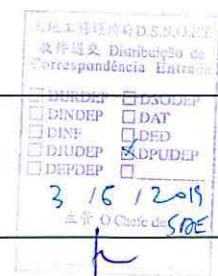 土地工務運輸局D.S.S.O.P.T.
收件遞交 Distribuição de
Correspondência Entrada
DURDEP DSODEP
DINDEP DAT
DINF DED
DJUDEP DPUDEP
DEPDEP
3 / 6 / 2019
主管 O Chefe de